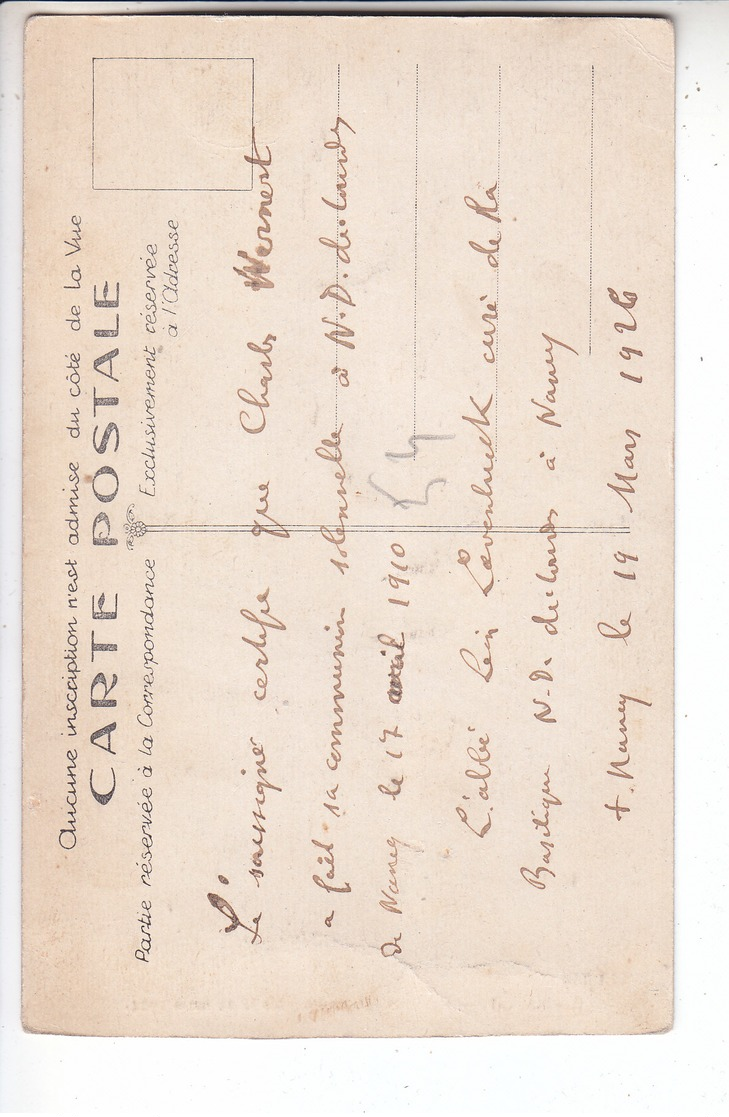 Aucune inscription n'est admise du côté de la Vue
CARTE POSTALE
Partie réservée à la Correspondance
Exclusivement réservée
à l'Adresse
Le soussigné certifie que Charles Wernert
a fait sa communion solennelle à N.D. de Lourdes
de Nancy le 17 avril 1910
L'abbé curé de la
Basilique N-D. de Lourdes à Nancy
Nancy le 19 Mars 1926